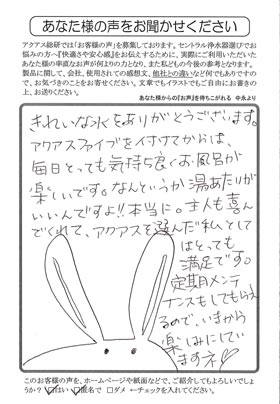 あなた様の声をお聞かせください
アクアス総研では「お客様の声」を募集しております。セントラル浄水器選びでお
悩みの方へ『快適さや安心感』をお伝えするために、実際にご利用いただいた
あなた様の率直なお声が何よりの力となり、また私どもの今後の参考となります。
製品に関して、会社、使用されての感想文、他社との違いなど何でもありますの
で、お気づきのことをお書きください。文章でもイラストでもご自由にお書きの上、お送りください。
あなた様からの『お声』を待ちこがれる 中永より
きれいな水をありがとうございます。
アクアスファイブを付けてからは、
毎日とっても気持ち良くお風呂が
楽しいです。なんというか湯あたりが
いいんですよ!!本当に。主人も喜ん
でくれて、アクアスを選んだ私として
はとっても
満足です。
定期メンテ
ナンスもしてもらえ
るので、いまから
楽しみにしてい
ますネ♡
このお客様の声を、ホームページや紙面などで、ご紹介してもよろしいでしょ
うか? ☑はい ☑匿名で □ダメ ←チェックを入れてください。